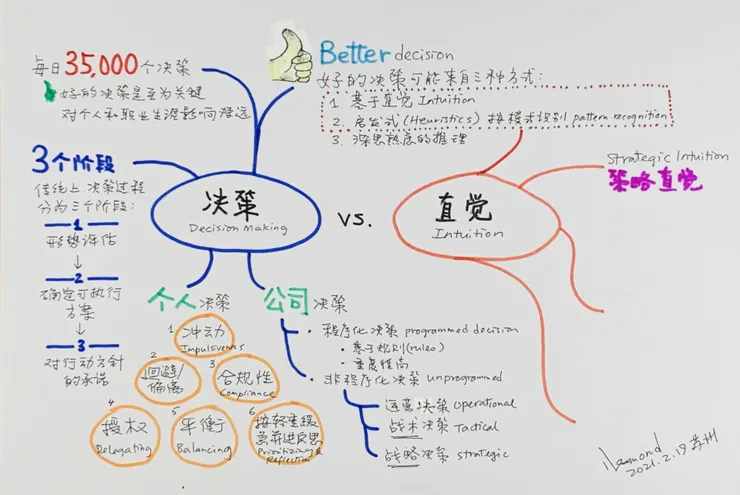 每日35,000个决策
好的决策是至为关键
对个人和职业生涯影响深远
Better decision
好的决策可能来自三种方式：
1. 基于直觉 Intuition
2. 启发式 (Heuristics) 按模式识别 pattern recognition
3. 深思熟虑的推理
3个阶段
传统上决策过程
分为三个阶段：
1
形势评估
2
确定可执行
方案
3
对行动方针
的承诺
决策
Decision Making
vs.
直觉
Intuition
Strategic Intuition
策略直觉
个人决策
1 冲动
Impulsiveness
2 回避/
偏离
3 合规性
Compliance
4 授权
Delegating
5 平衡
Balancing
6 按轻重缓
急并进反思
Prioritizing &
Reflection
公司决策
• 程序化决策 programmed decision
• 基于规则(rules)
• 重复性高
• 非程序化决策 unprogrammed
运营决策 Operational
战术决策 Tactical
战略决策 strategic
Desmond
2021.2.19 苏州